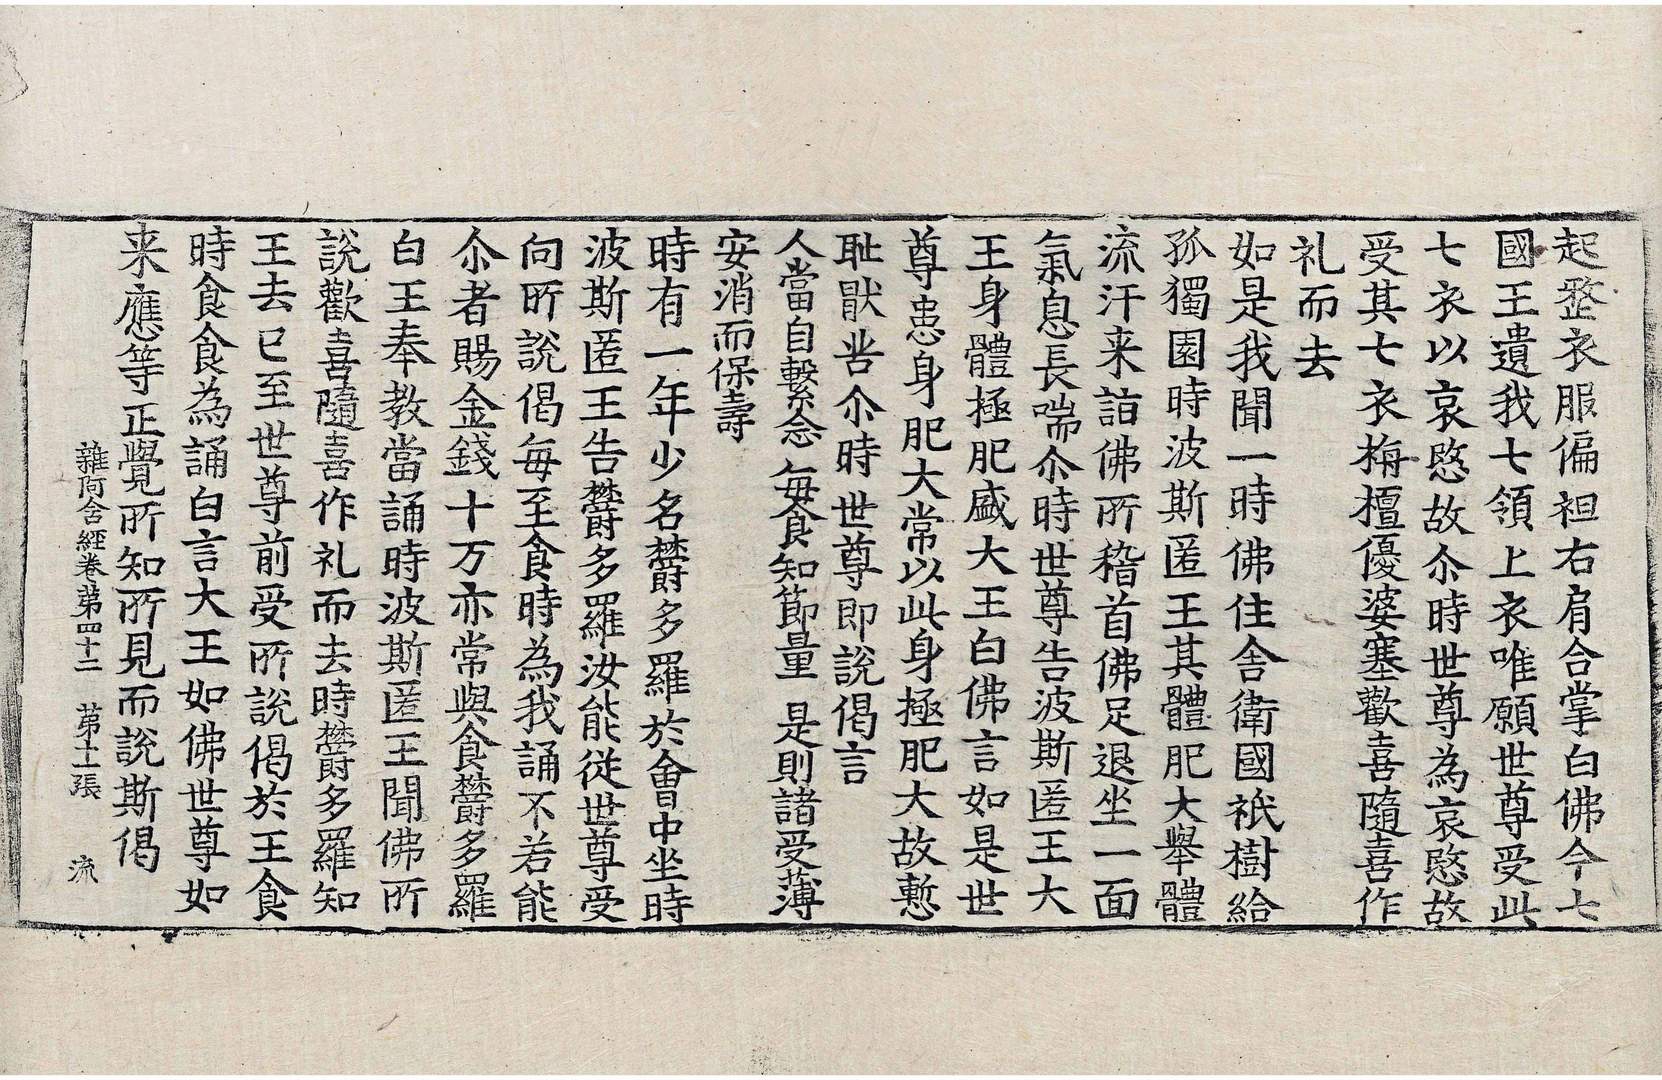 起整衣服偏袒右肩合掌白佛今七
國王遺我七領上衣唯願世尊受此
七衣以哀愍故尒時世尊為哀愍故
受其七衣栴檀優婆塞歡喜隨喜作
礼而去
如是我聞一時佛住舍衛國祇樹給
孤獨園時波斯匿王其體肥大舉體
流汗来詣佛所稽首佛足退坐一面
氣息長喘尒時世尊告波斯匿王大
王身體極肥盛大王白佛言如是世
尊患身肥大常以此身極肥大故慙
耻猒苦尒時世尊即說偈言
人當自繫念 每食知節量 是則諸受薄
安消而保壽
時有一年少名欝多羅於會中坐時
波斯匿王告欝多羅汝能從世尊受
向所說偈每至食時為我誦不若能
尒者賜金錢十万亦常與食欝多羅
白王奉教當誦時波斯匿王聞佛所
說歡喜隨喜作礼而去時欝多羅知
王去已至世尊前受所說偈於王食
時食食為誦白言大王如佛世尊如
来應等正覺所知所見而說斯偈
雜阿含經卷第四十二 第十一張 流